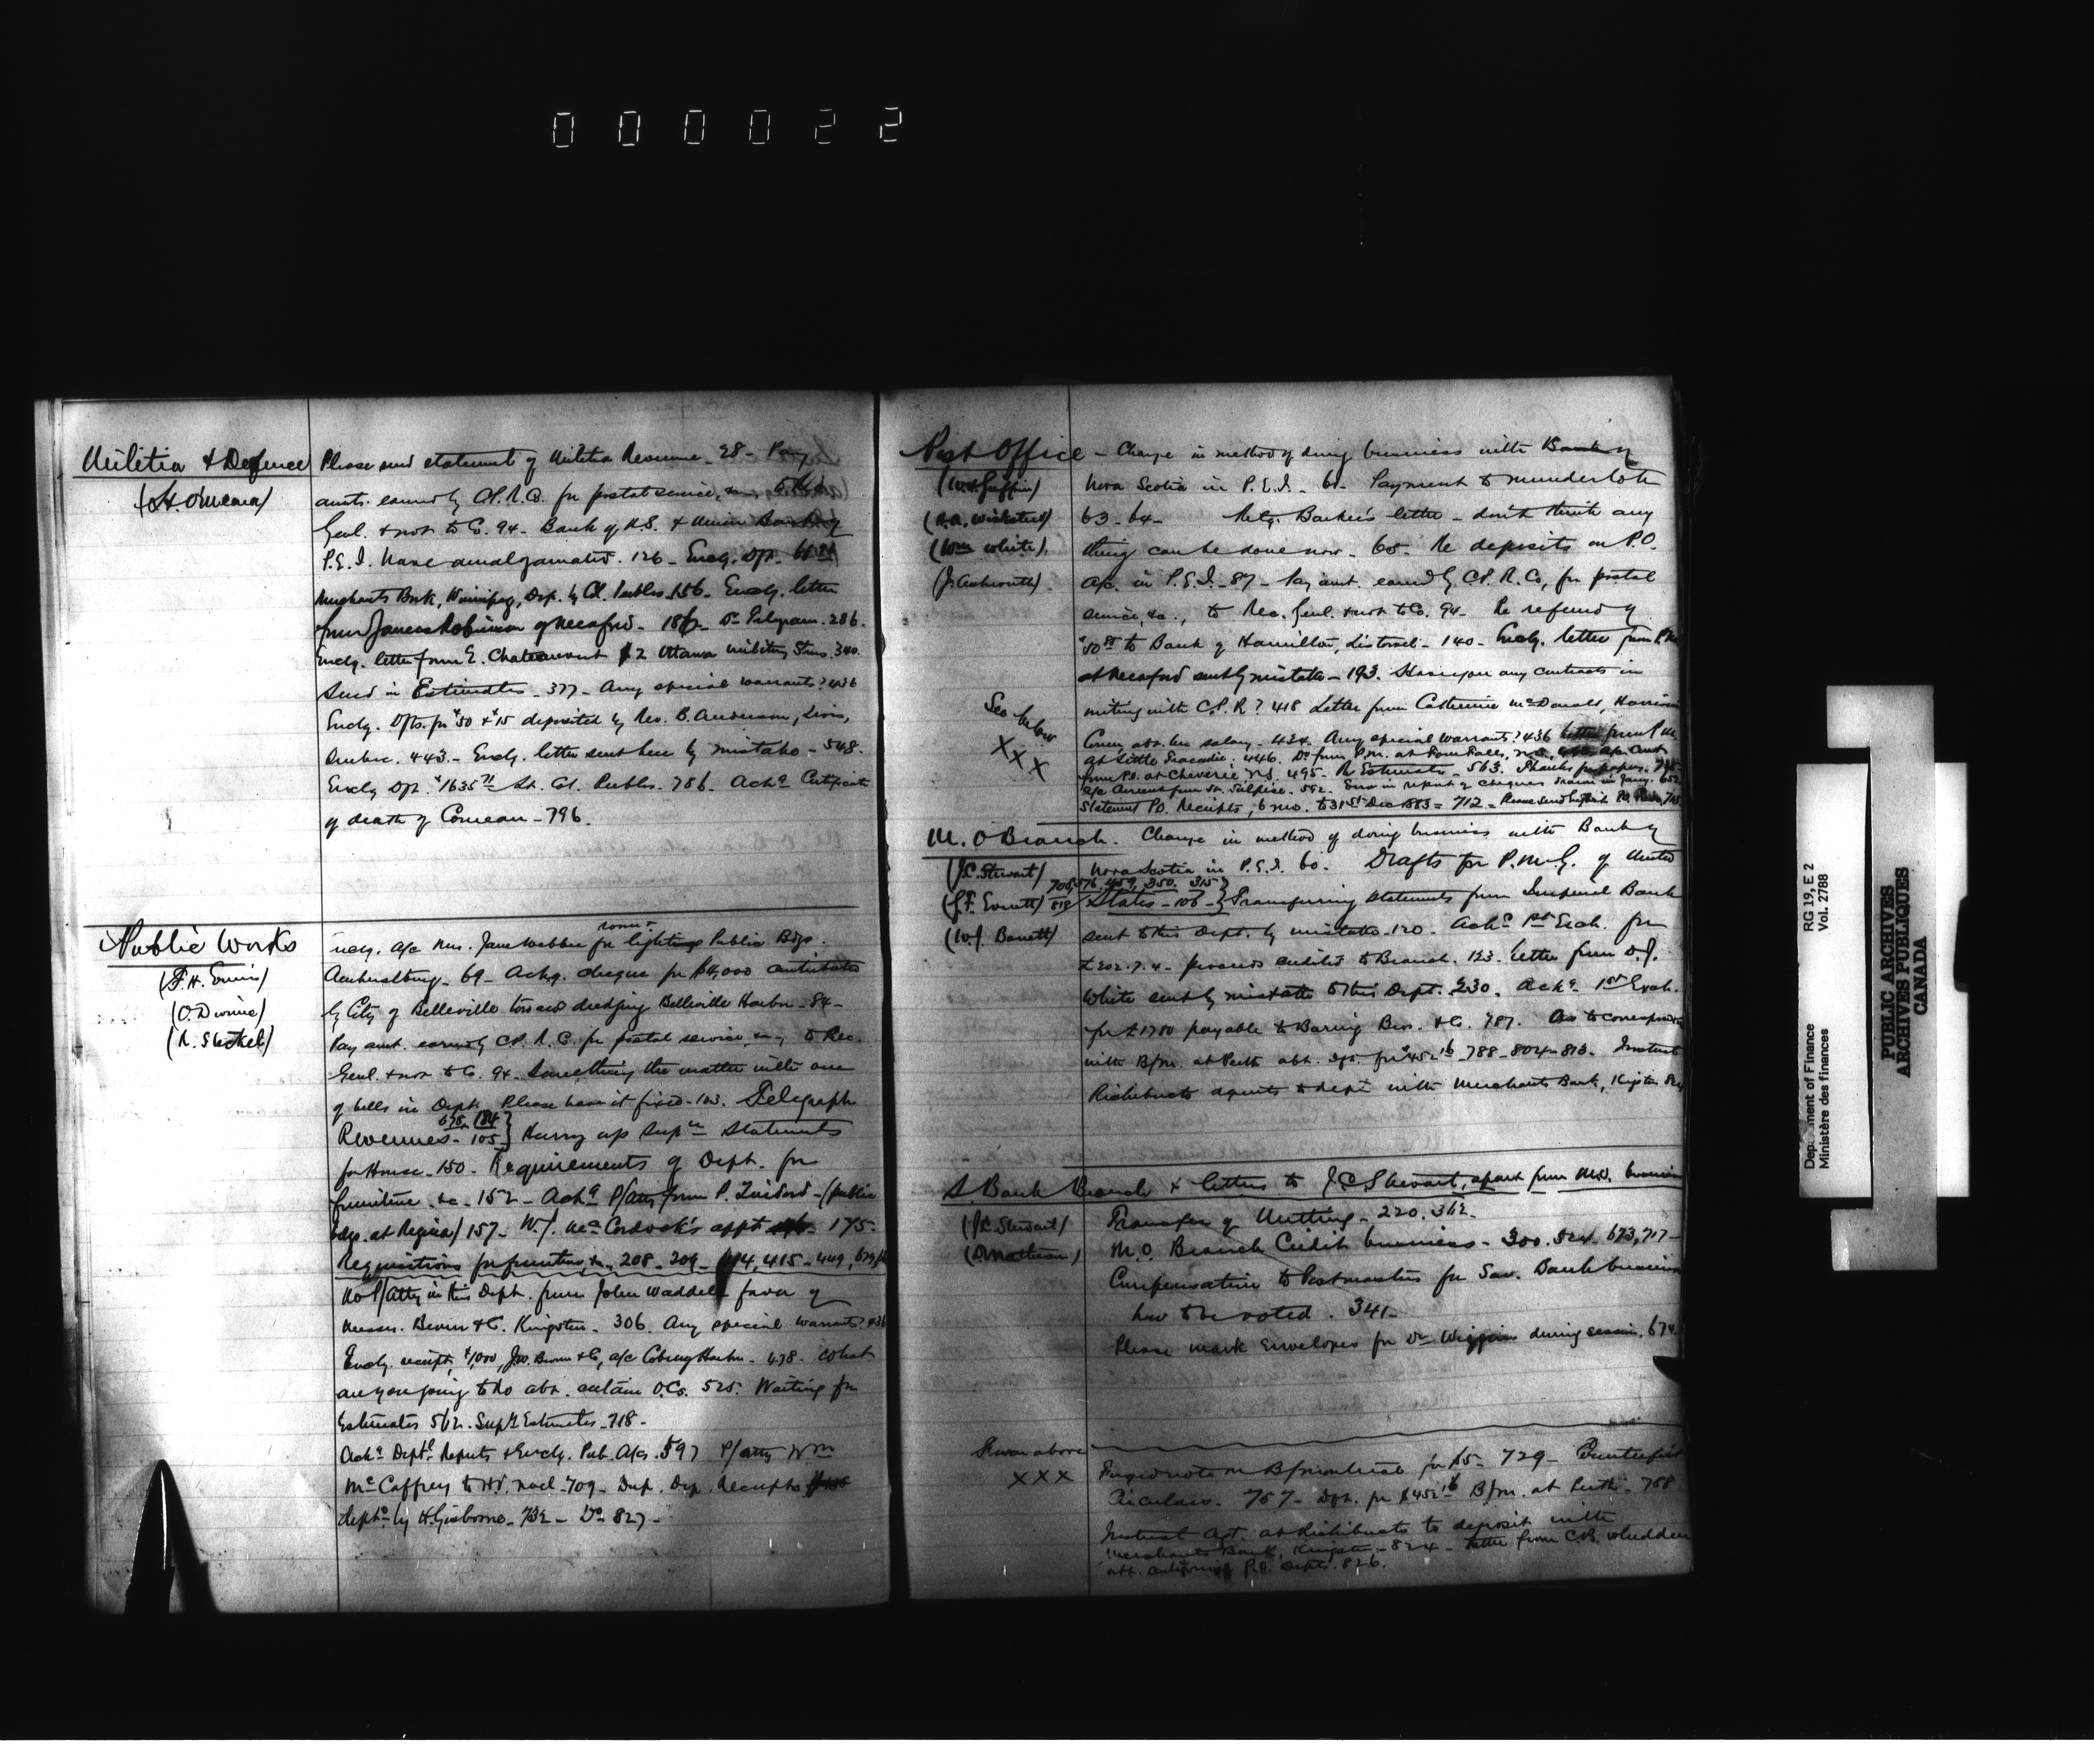 000022
Militia & Defence
(H. O'Meara)
Please send statement of Militia Revenue - 28 - Pay
amts. earned by C.P.R. Co. for postal service, &c., to Rec.
Genl. & not to Co. 94 - Bank of N.S. & Union Bank of
P.E.I. have amalgamated. 126 - Encly. Dft.
Merchants Bank, Winnipeg, Dep. by Cl. Peebles 156 - Encly. letter
from James Robinson of Meaford - 182 - Do Telegram. 286.
Encly. letter from E. Chateauvert 2 Ottawa military Stns. 340.
Send in Estimates - 377 - Any special warrants? 436
Encly. Dfts. for $50 & $15 deposited by Rev. B. Anderson, Levis,
Quebec. 443 - Encly. letter sent here by mistake - 548.
Encly Dft. $1635 71 Lt. Col. Peebles. 786. Ackg Certificate
of death of Comeau - 796.
Public Works
(F.H. Ennis)
(O. Dionne)
(R. Steckel)
ency. a/c Mrs. Jane Webber for lighting Public Bdgs.
Amherstburg - 69 - Ackg. cheque for $4,000 contributed
by City of Belleville toward dredging Belleville Harbor - 84 -
Pay amt. earned by C.P.R.C. for postal service, &c., to Rec.
Genl. & not to Co. 94 - Something the matter with one
of bells in Dept. Please have it fixed - 103. Telegraph
678, 184
Revenues - 105 } Hurry up Supy Statements
for House - 150 - Requirements of Dept. for
furniture &c - 152 - Ackg P/atty from P. - (public
bdgs. at Regina) 157 - W.J. McCordock's appt 175 -
Requisitions for furniture &c., 208 - 209 - 414, 415 - 449, 679,
No P/atty in this Dept. from John Waddell favor of
Messrs. Brown & Co. Kingston - 306. Any special warrants? 436
Encly. receipt, $1,000, J.W. Brown & Co, a/c Cobourg Harbor - 478 - What
are you going to do abt. certain O.Cs. 525. Waiting for
Estimates 562. Supy Estimates - 718 -
Ackg Deptl Reports & Encly. Pub. A/cs. 597 P/atty Wm
McCaffrey to H.V. Noel - 709 - Dup. Dep. Receipts
depd by H. Gisborne - 732 - Do 827 -
Post Office - Change in method of doing business with Bank of
(W.H. Griffin)
(H.A. Wicksteed)
(Wm White)
(J. Ashworth)
Nova Scotia in P.E.I. - 61 - Payment to Munderloh
63 - 64 - Retg. Barker's letter - don't think any
thing can be done now - 65 - Re deposits on P.O.
a/c. in P.E.I. - 87 - Pay amt. earned by C.P.R. Co, for postal
service, &c., to Rec. Genl. & not to Co. 94 - Re refund of
to Bank of Hamilton, Listowel - 140 - Encly. letter from P.M.
at Meaford sent by mistake - 193. Have you any contracts in
See below
XXX
writing with C.P.R? 418 Letter from Catherine McDonald, Harrison
Corner, abt. her salary - 424 - Any special warrants? 436 letter from P.M.
at Little Tracadie. 446. Do from P.M. at Four Falls, N.B.
from P.O. at Cheverie N.S. 495 - Re Estimates - 563. Thanks for papers. 715 -
a/c Current from St. Sulpice - 592 - Error in report of cheques drawn in Jany. 652
Statement P.O. Receipts, 6 mo. to 31st Dec 1883 = 712 - Please send
M. O Branch. Change in method of doing business with Bank of
(J.C. Stewart)
(J.F. Everett)
(W.J. Barrett)
Nova Scotia in P.E.I. 60. Drafts for P.M.G. of United
705, 576, 459, 350, 315
819
States - 106 - } Transferring statements from Imperial Bank
sent to this Dept. by mistake - 120 - Ackg 1st Exch. for
£202.7.4 - proceeds credited to Branch. 123. Letter from D.J.
White sent by mistake to this Dept. 230. Ackg - 1st Exch.
for £1780 payable to Baring Bros. & Co. 787. As to correspondence
with B/M. at Perth abt. Dft. for $452 16 - 788 - 804 - 813 - Instruct
Richibucto agents to dept with Merchants Bank, Kingston 824
S Bank Branch & letters to J.C. Stewart, apart from M.O. business
(J.C. Stewart)
(D. Matheson)
Transfer of Nutting - 220. 362 -
M.O. Branch Credit business - 300. 524 - 673, 717 -
Compensation to Postmasters for Sav. Bank business
how to be voted. 341 -
Please mark envelopes for Dr Wiggins during session. 674
From above
XXX
Forged note on B/Montreal for $5 - 729 - Counterfeit
Circulars. 757 - Dft. for $452 16 B/M. at Perth - 788
Instruct Agt. at Richibucto to deposit with
Merchants Bank, Kingston - 824 - Letter from C.B. Whidden
abt. P.O. Depts. 826.
Department of Finance
Ministère des finances
RG 19, E 2
Vol. 2788
PUBLIC ARCHIVES
ARCHIVES PUBLIQUES
CANADA